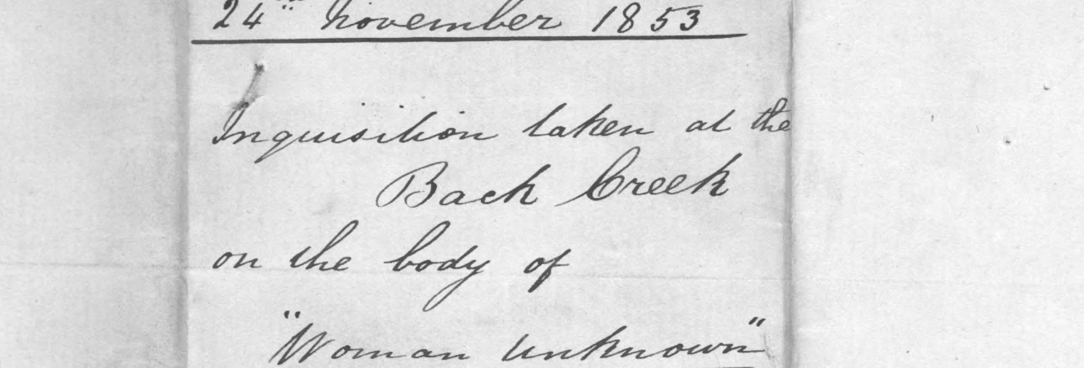 24th November 1853
Inquisition taken at the
Back Creek
on the body of
"Woman Unknown"